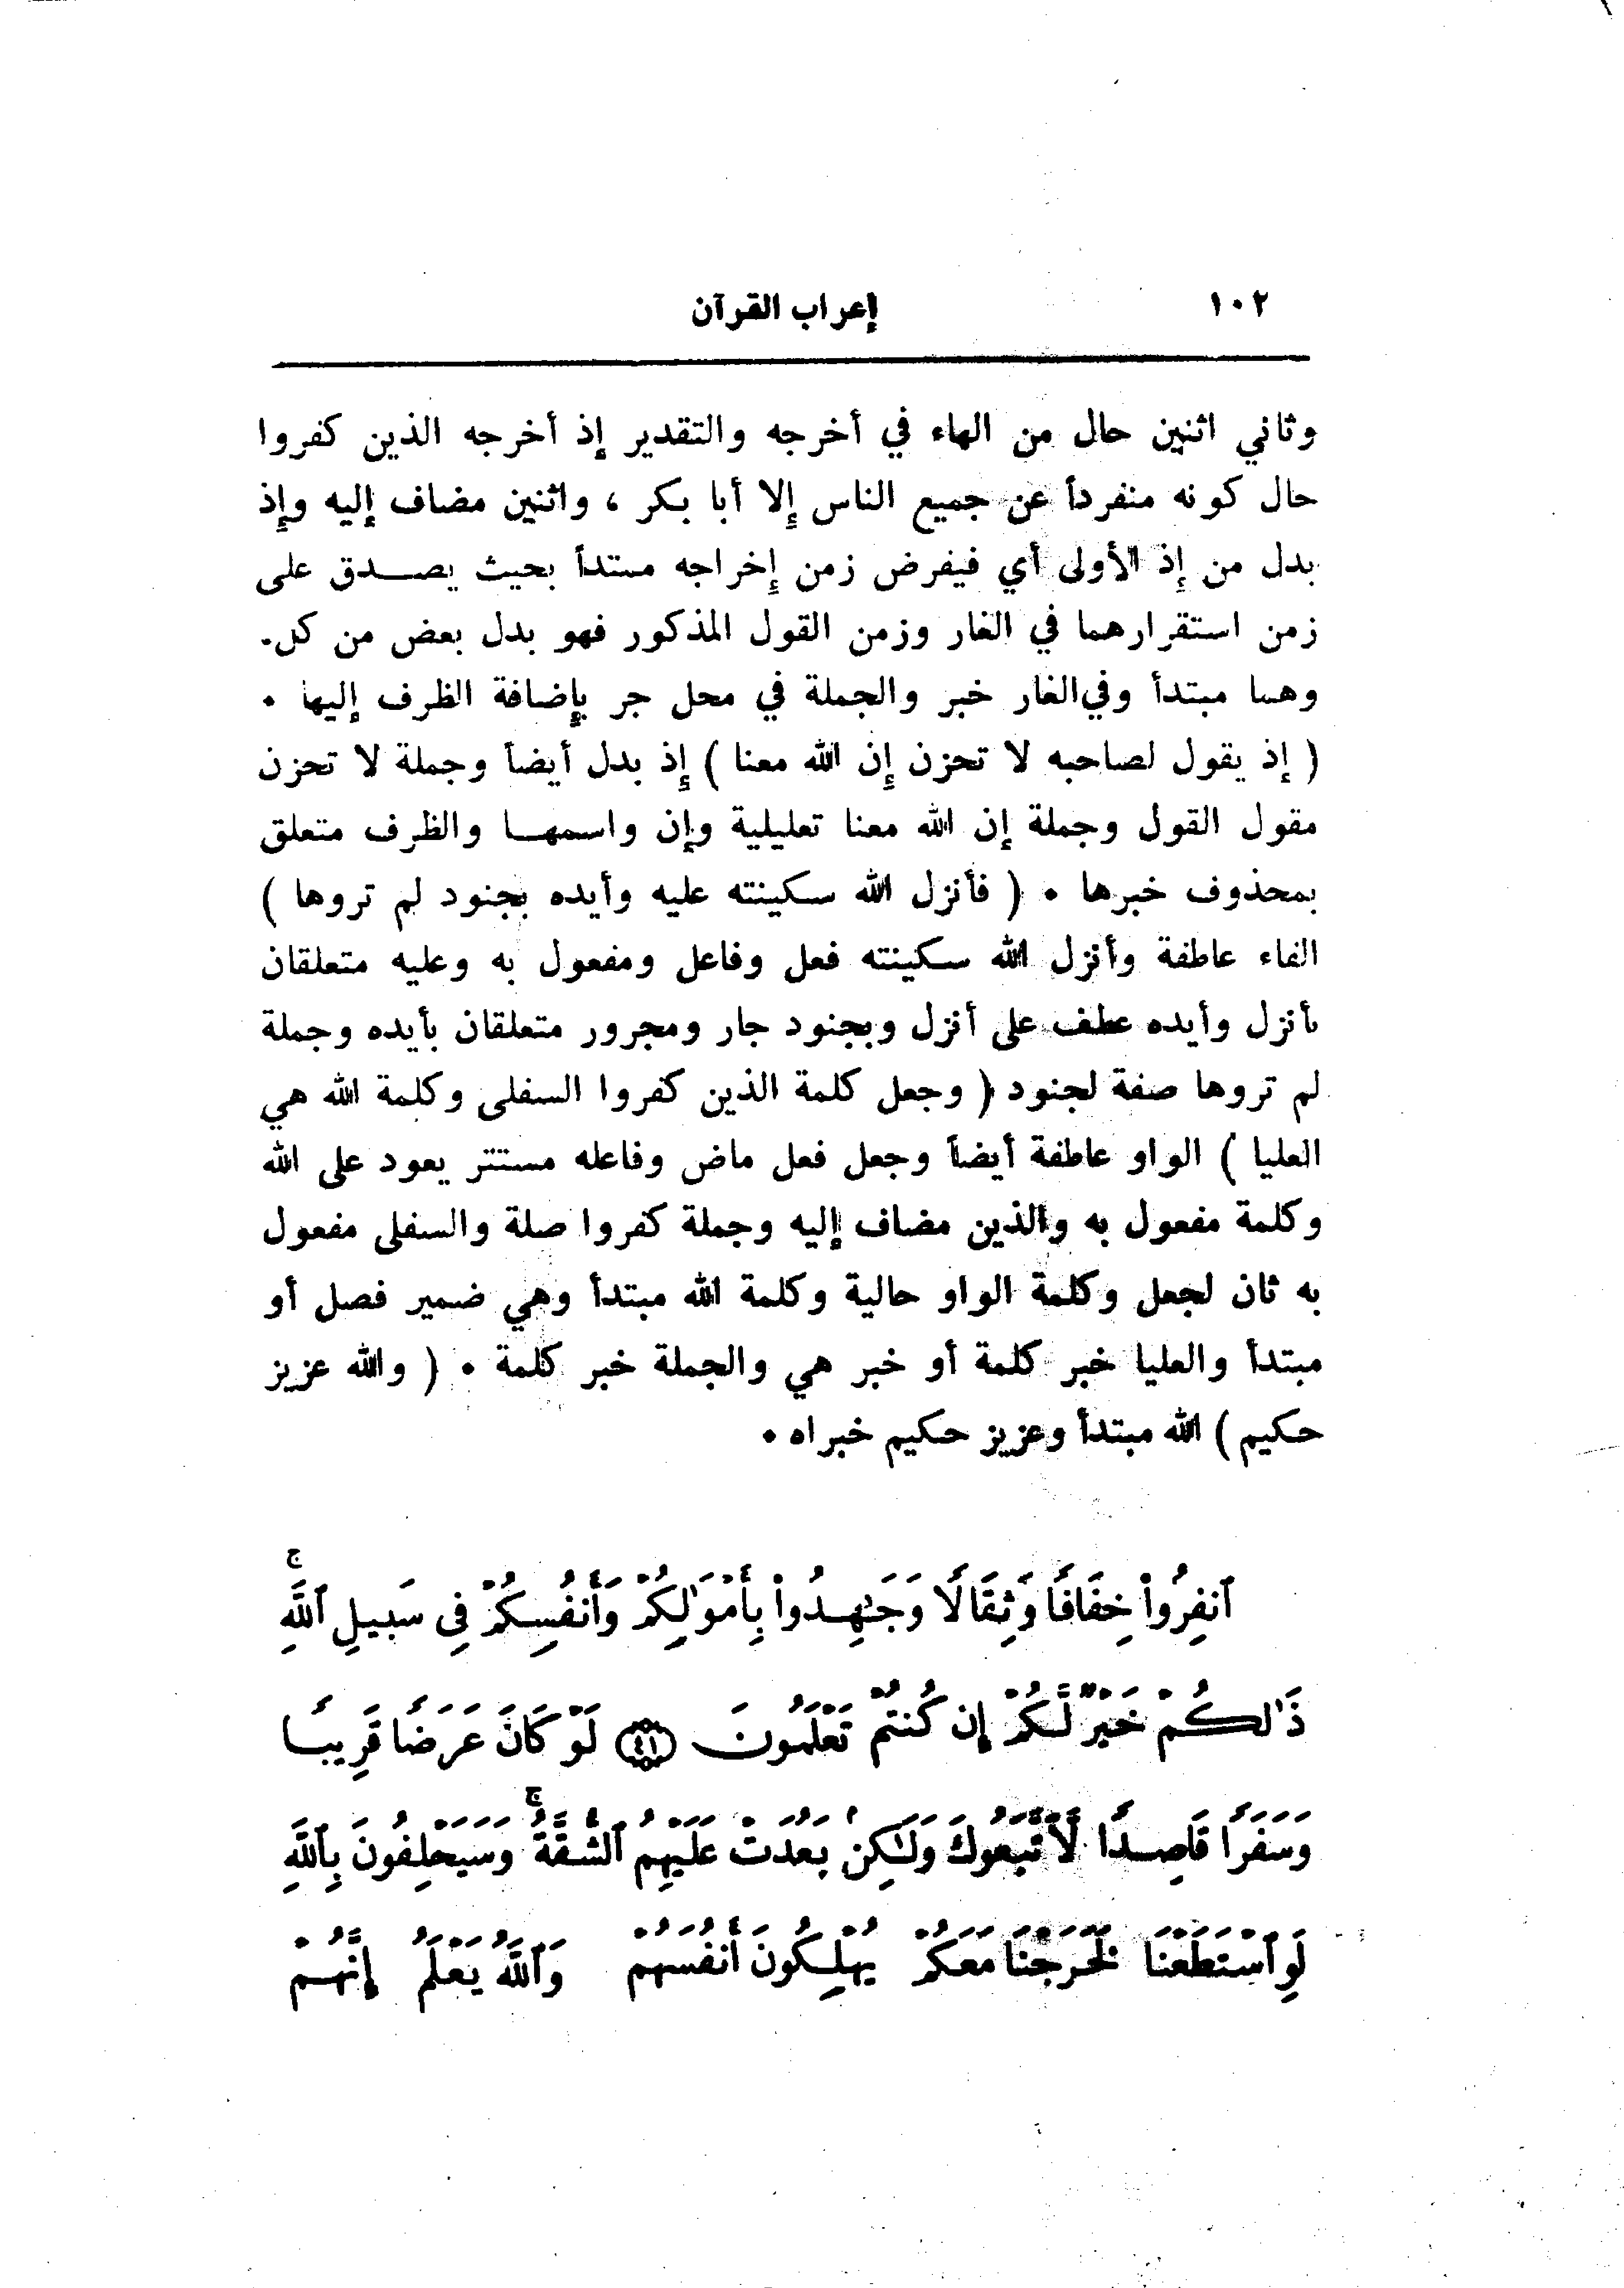 ١٠٢ إعراب القرآن
وثاني اثنين حال من الهاء في أخرجه والتقدير إذ أخرجه الذين كفروا
حال كونه منفرداً عن جميع الناس إلا أبا بكر ، واثنين مضاف إليه وإذ
بدل من إذ الأولى أي فيفرض زمن إخراجه ممتداً بحيث يصدق على
زمن استقرارهما في الغار وزمن القول المذكور فهو بدل بعض من كل.
وهما مبتدأ وفي الغار خبر والجملة في محل جر بإضافة الظرف إليها .
( إذ يقول لصاحبه لا تحزن إن الله معنا ) إذ بدل أيضاً وجملة لا تحزن
مقول القول وجملة إن الله معنا تعليلية وإن واسمها والظرف متعلق
بمحذوف خبرها . ( فأنزل الله سكينته عليه وأيده بجنود لم تروها )
الفاء عاطفة وأنزل الله سكينته فعل وفاعل ومفعول به وعليه متعلقان
بأنزل وأيده عطف على أنزل وبجنود جار ومجرور متعلقان بأيده وجملة
لم تروها صفة لجنود ( وجعل كلمة الذين كفروا السفلى وكلمة الله هي
العليا ) الواو عاطفة أيضاً وجعل فعل ماض وفاعله مستتر يعود على الله
وكلمة مفعول به والذين مضاف إليه وجملة كفروا صلة والسفلى مفعول
به ثان لجعل وكلمة الواو حالية وكلمة الله مبتدأ وهي ضمير فصل أو
مبتدأ والعليا خبر كلمة أو خبر هي والجملة خبر كلمة . ( والله عزيز
حكيم ) الله مبتدأ وعزيز حكيم خبراه .
ٱنفِرُوا۟ خِفَافًا وَثِقَالًا وَجَـٰهِدُوا۟ بِأَمْوَٰلِكُمْ وَأَنفُسِكُمْ فِى سَبِيلِ ٱللَّهِۚ
ذَٰلِكُمْ خَيْرٌ لَّكُمْ إِن كُنتُمْ تَعْلَمُونَ ﴿٤١﴾ لَوْ كَانَ عَرَضًا قَرِيبًا
وَسَفَرًا قَاصِدًا لَّٱتَّبَعُوكَ وَلَـٰكِنۢ بَعُدَتْ عَلَيْهِمُ ٱلشُّقَّةُۚ وَسَيَحْلِفُونَ بِٱللَّهِ
لَوِ ٱسْتَطَعْنَا لَخَرَجْنَا مَعَكُمْ يُهْلِكُونَ أَنفُسَهُمْ وَٱللَّهُ يَعْلَمُ إِنَّهُمْ